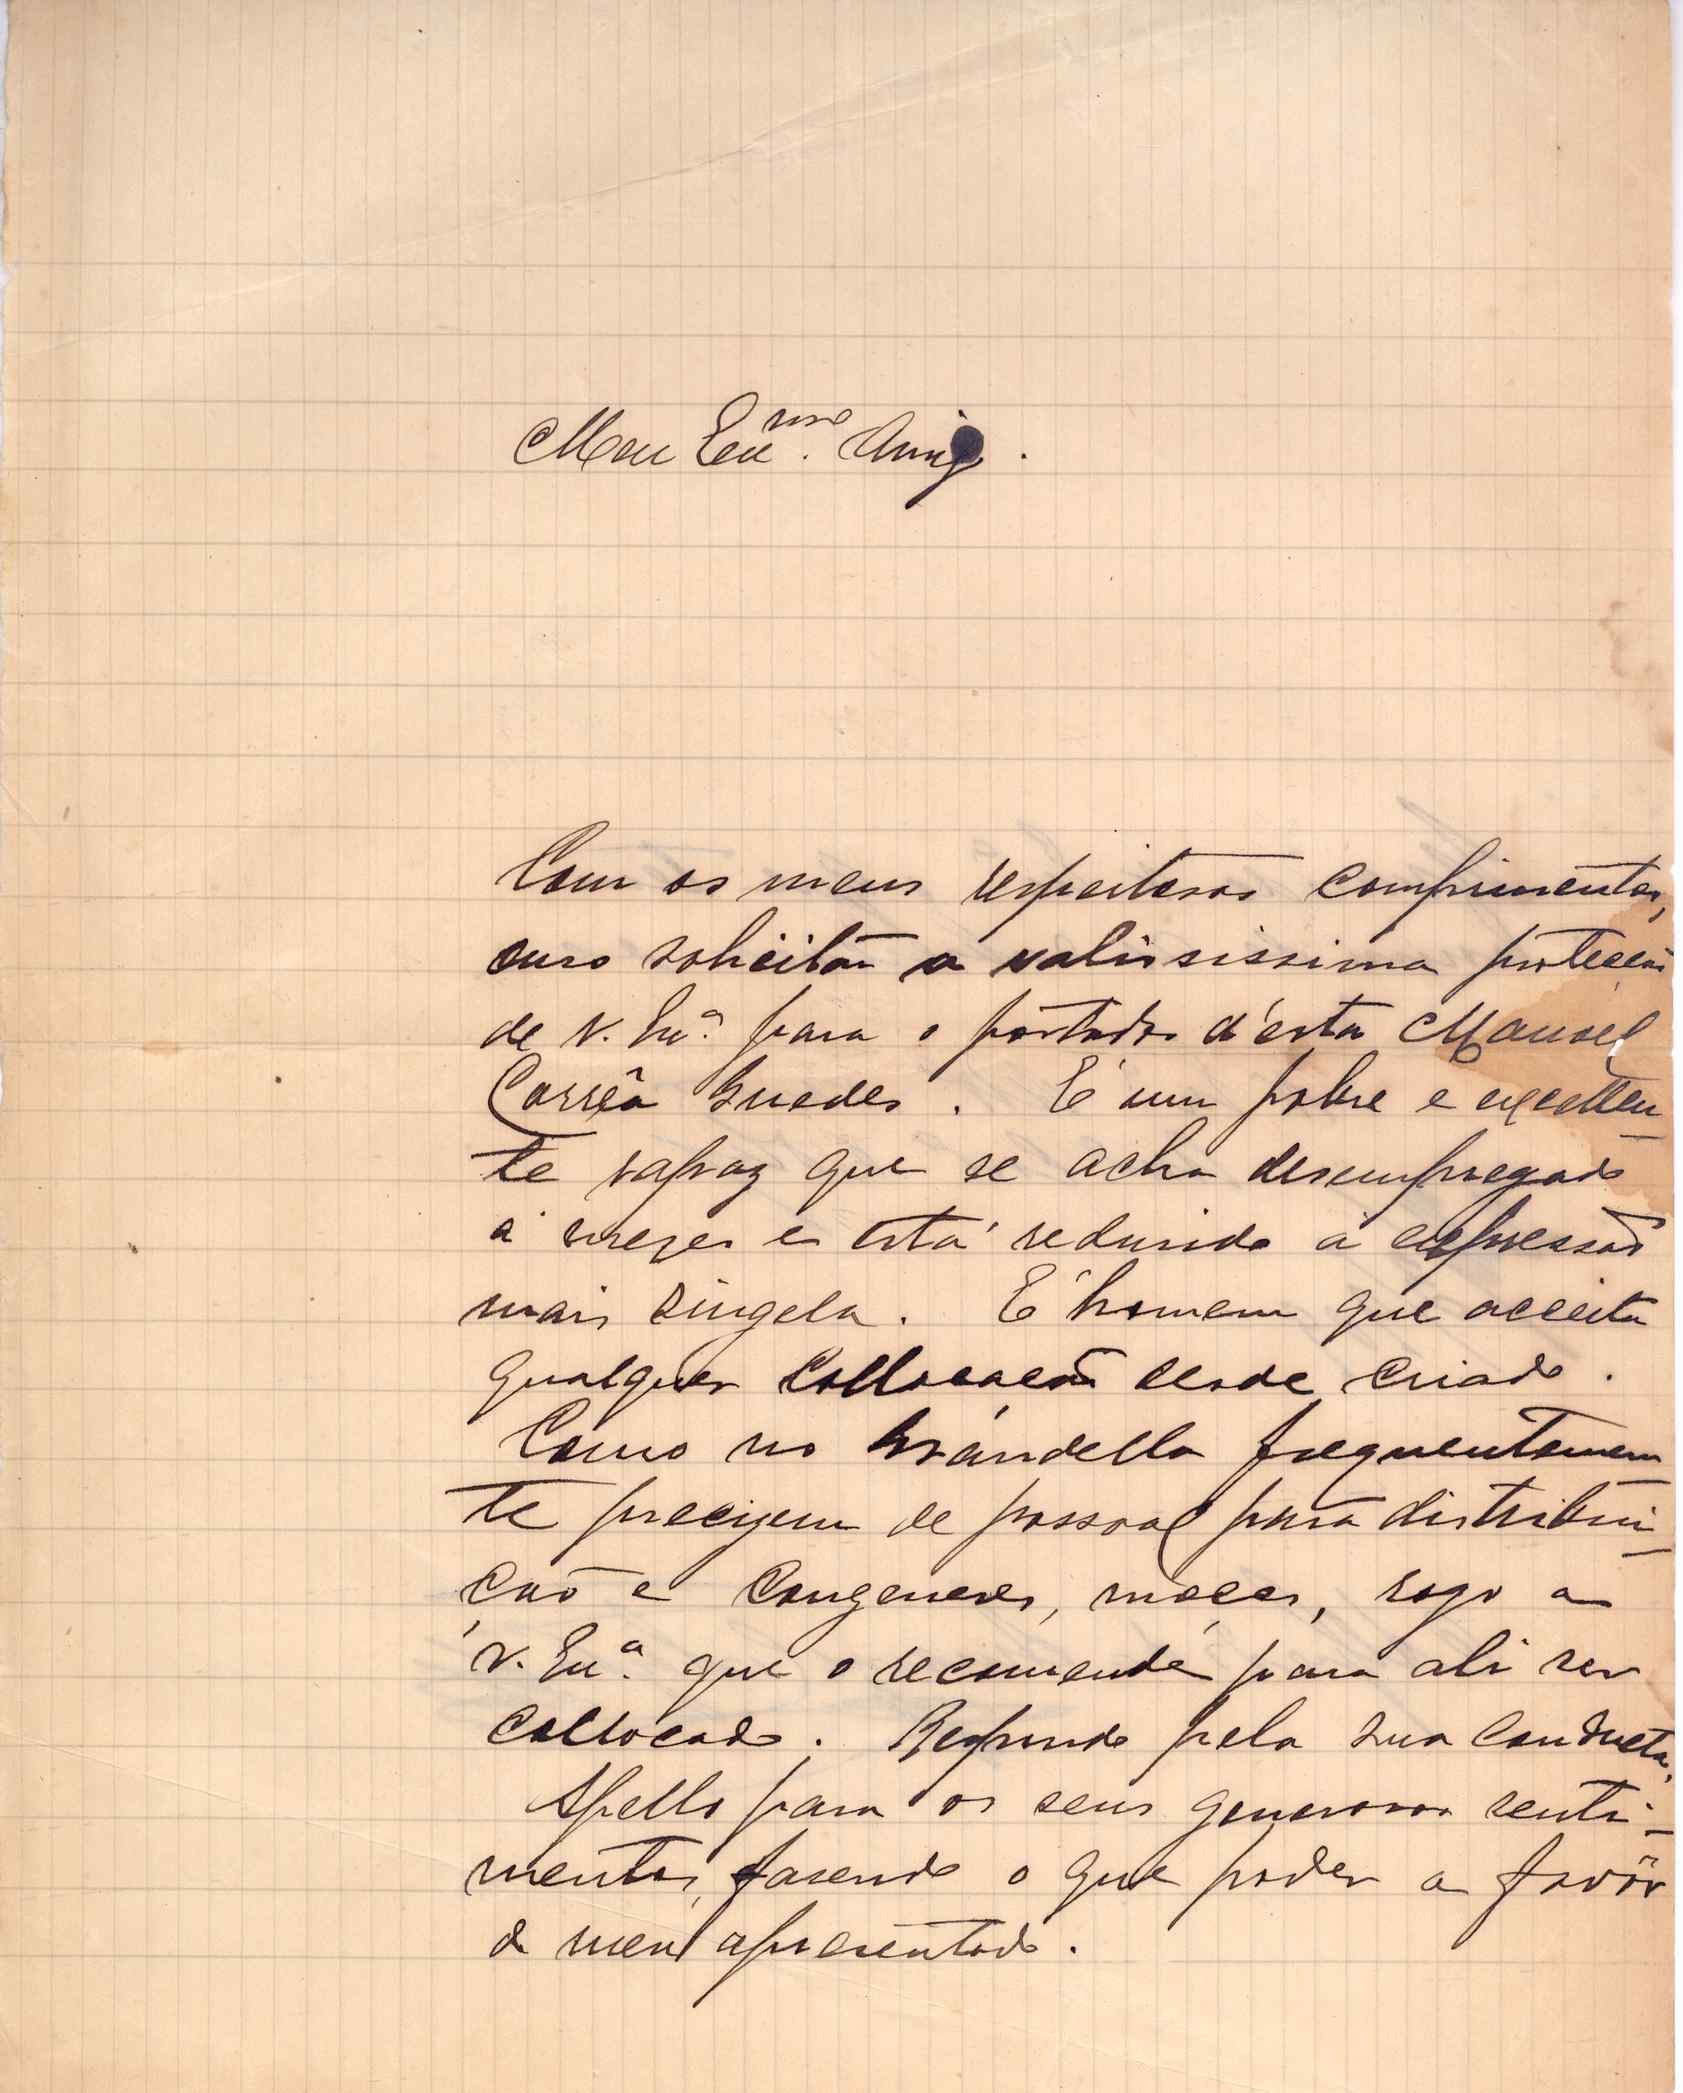 Meu Ex.mo Amigo.
Com os meus respeitosos comprimentos,
ouso solicitar a valiosissima protecção
de V. Ex.ª para o portador d'esta Manoel
Corrêa Guedes. É um pobre e excellen-
te rapaz que se acha desempregado
á mezes e está reduzido á expressão
mais singela. É homem que acceita
qualquer collocação desde criado.
Como no Grandella frequentemen
te precizem de pessoal para distribui-
ção e congeneres, moços, rogo a
V. Ex.ª que o recomende para ali ser
collocado. Respondo pela sua conducta.
Apello para os seus generosos senti-
mentos, fasendo o que poder a favôr
do meu apresentado.